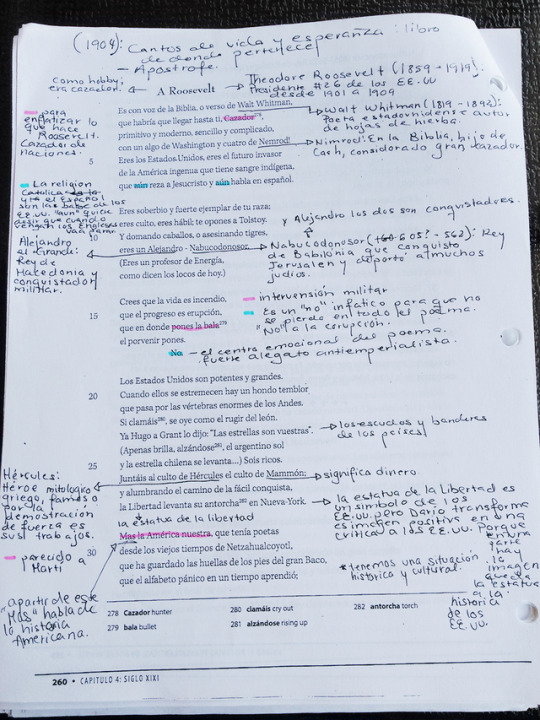 (1904): Cantos de vida y esperanza : libro
de donde pertenece
- Apóstrofe.
como hobby:
era cazador.
A Roosevelt
Theodore Roosevelt (1859 - 1919):
Presidente #26 de los EE.UU
desde 1901 a 1909
para
enfatizar lo
que hace
Roosevelt.
Cazador de
naciones.
Es con voz de la Biblia, o verso de Walt Whitman,
que habría que llegar hasta ti, Cazador278,
primitivo y moderno, sencillo y complicado,
con un algo de Washington y cuatro de Nemrod!
5 Eres los Estados Unidos, eres el futuro invasor
de la América ingenua que tiene sangre indígena,
que aún reza a Jesucristo y aún habla en español.
Walt Whitman (1819 - 1892):
Poeta estadounidense autor
de hojas de hierba.
Nimrod: En la Biblia, hijo de
Cush, considerado gran cazador.
La religión
Católica
y el Español
son las base de los
EE.UU. "aun" quiere
decir que cuando
vengan los Ingleses
Eres soberbio y fuerte ejemplar de tu raza;
eres culto, eres hábil; te opones a Tolstoy.
10 Y domando caballos, o asesinando tigres,
eres un Alejandro - Nabucodonosor.
(Eres un profesor de Energía,
como dicen los locos de hoy.)
y Alejandro los dos son conquistadores.
Nabucodonosor (605? - 562): Rey
de Babilonia que conquisto
Jerusalen y deportó a muchos
judíos.
Alejandro
el Grande:
Rey de
Macedonia y
conquistador
militar.
Crees que la vida es incendio,
15 que el progreso es erupción,
que en donde pones la bala279
el porvenir pones.
No
intervensión militar
Es un "no" infatico para que no
se pierda en todo el poema.
"No" a la corupción.
- el centro emocional del poema.
fuerte alegato antiimperialista.
Los Estados Unidos son potentes y grandes.
20 Cuando ellos se estremecen hay un hondo temblor
que pasa por las vértebras enormes de los Andes.
Si clamáis280, se oye como el rugir del león.
Ya Hugo a Grant lo dijo: "Las estrellas son vuestras".
(Apenas brilla, alzándose281, el argentino sol
25 y la estrella chilena se levanta...) Sois ricos.
Juntáis al culto de Hércules el culto de Mammón;
y alumbrando el camino de la fácil conquista,
la Libertad levanta su antorcha282 en Nueva-York.
los escudos y banderas
de los países
significa dinero
Hércules:
Héroe mitologico
griego, famoso
por la
demostración
de fuerza es
sus trabajos.
la estatua de la libertad
la estatua de la Libertad es
un simbolo de los
EE.UU. pero Darío transforma
es imagen positiva en una
critica a los EE.UU. Porque
en una
parte
hay
la
imagen
que da
la estatua
a la
historia
de los
EE.UU.
Mas la América nuestra, que tenía poetas
30 desde los viejos tiempos de Netzahualcoyotl,
que ha guardado las huellas de los pies del gran Baco,
que el alfabeto pánico en un tiempo aprendió;
parecido a
Martí
* tenemos una situación
historica y cultural.
"apartir de este
"Mas" habla de
la historia
Americana.
278 Cazador hunter
279 bala bullet
280 clamáis cry out
281 alzándose rising up
282 antorcha torch
260 • CAPITULO 4: SIGLO XIX